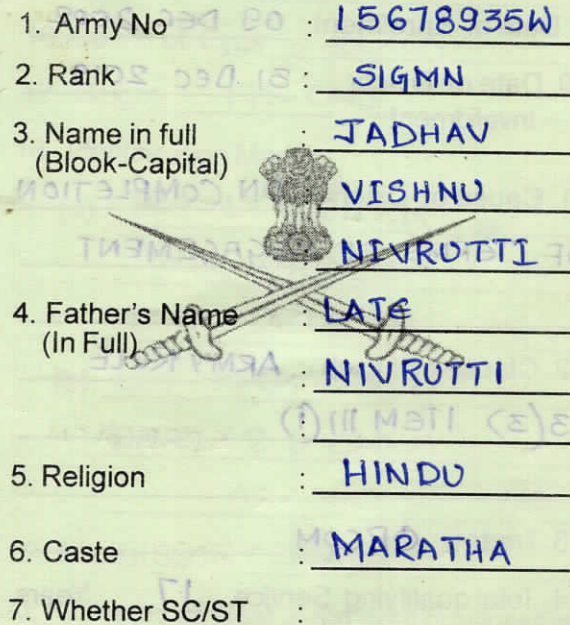 1. Army No : 15678935W
2. Rank : SIGMN
3. Name in full : JADHAV
(Blook-Capital) : VISHNU
: NIVRUTTI
4. Father's Name : LATE
(In Full) : NIVRUTTI
:
5. Religion : HINDU
6. Caste : MARATHA
7. Whether SC/ST :